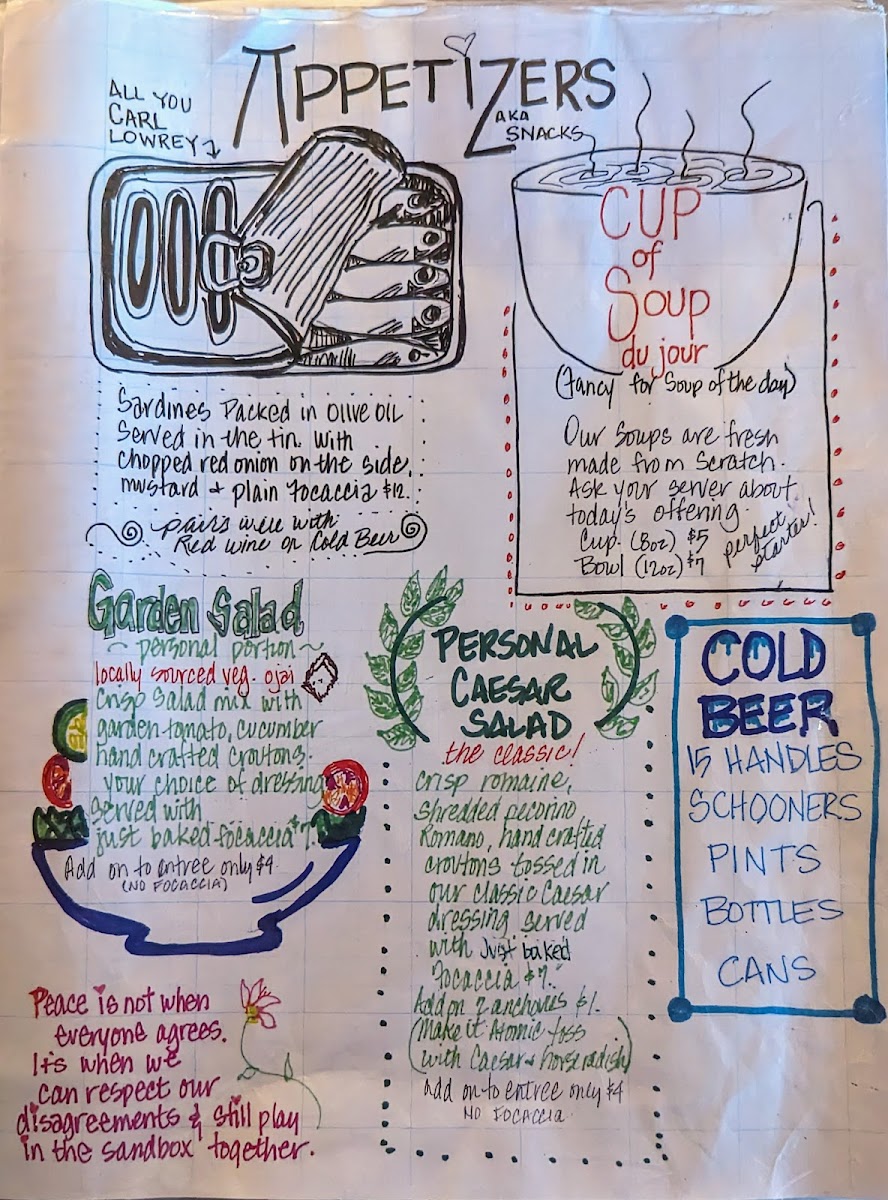 APPETIZERS
AKA
SNACKS
ALL YOU
CARL
LOWREY
CUP
of
Soup
du jour
(Fancy for Soup of the day)
Our Soups are fresh
made from Scratch.
Ask your server about
today's offering.
Cup (8oz) $5
Bowl (12oz) $7
perfect
starter!
Sardines Packed in Olive oil
Served in the tin. With
chopped red onion on the side,
mustard & plain Focaccia $12.
pairs well with
Red wine or Cold Beer
Garden Salad
~ personal portion ~
locally sourced veg. ojai
Crisp Salad mix with
garden tomato, cucumber
hand crafted croutons.
your choice of dressing
Served with
just baked focaccia $7.
Add on to entree only $4
(NO FOCACCIA)
PERSONAL
CAESAR
SALAD
the classic!
Crisp romaine,
shredded pecorino
Romano, hand crafted
croutons tossed in
our classic Caesar
dressing served
with Just baked
Focaccia $7.
Add on 2 anchovies $1.
(Make it Atomic toss
with Caesar & horseradish)
add on to entree only $4
NO FOCACCIA
COLD
BEER
15 HANDLES
SCHOONERS
PINTS
BOTTLES
CANS
Peace is not when
everyone agrees.
It's when we
can respect our
disagreements & still play
in the sandbox together.